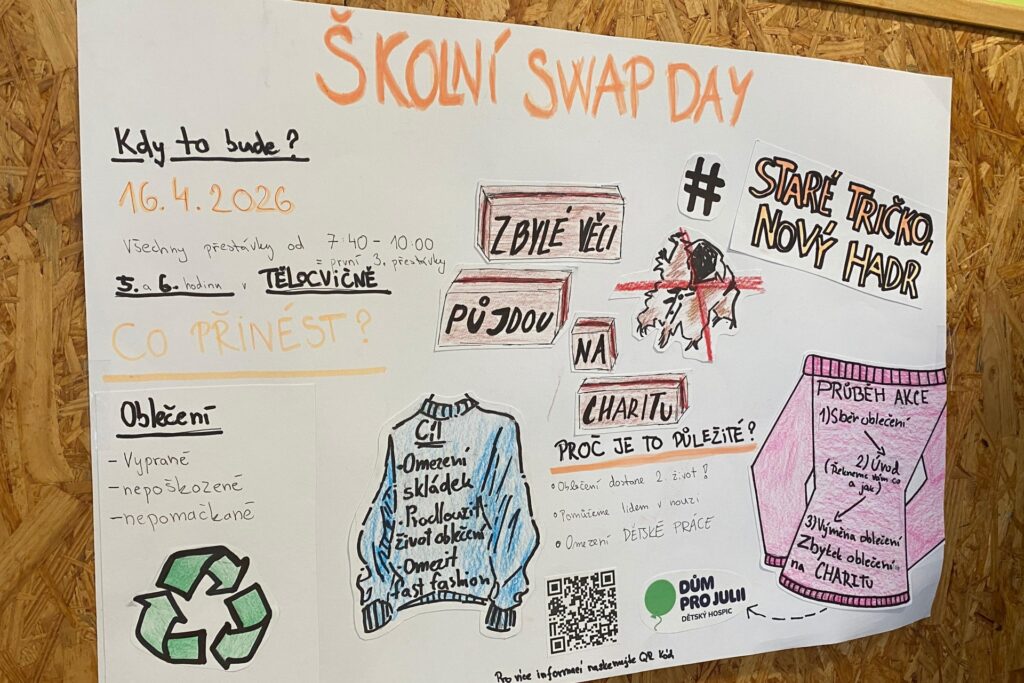 ŠKOLNÍ SWAP DAY
Kdy to bude?
16.4.2026
Všechny přestávky od 7:40 - 10:00
= první 3. přestávky
5. a 6. hodinu v TĚLOCVIČNĚ
CO PŘINÉST?
Oblečení
- Vyprané
- nepoškozené
- nepomačkané
ZBYLÉ VĚCI
PŮJDOU
NA
CHARITU
#
STARÉ TRIČKO,
NOVÝ HADR
Cíl
- Omezení
skládek
- Prodloužit
život oblečení
- Omezit
fast fashion
PROČ JE TO DŮLEŽITÉ?
• Oblečení dostane 2. život!
• Pomůžeme lidem v nouzi
• Omezení DĚTSKÉ PRÁCE
DŮM
PRO JULII
DĚTSKÝ HOSPIC
PRŮBĚH AKCE
1) Sběr oblečení
2) Úvod
(Řekneme vám co
a jak)
3) Výměna oblečení
Zbytek oblečení
na CHARITU
Pro více informací naskenujte QR kód